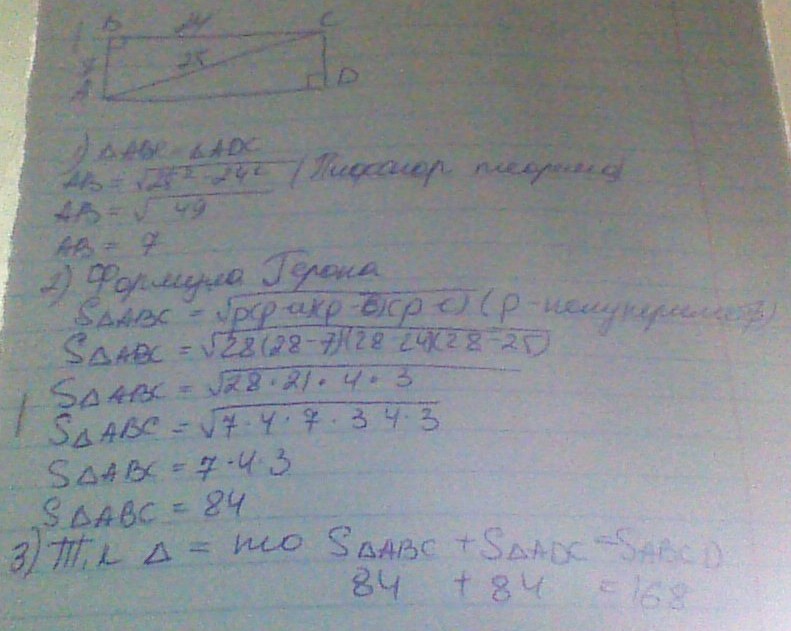 B 24 C
25
D
1) ΔABC = ΔADC
AB = √25² - 24² (Пифагор теорема)
AB = √49
AB = 7
2) Формула Герона
SΔABC = √p(p-a)(p-b)(p-c) (p - полупериметр)
SΔABC = √28(28-7)(28-24)(28-25)
SΔABC = √28·21·4·3
SΔABC = √7·4·7·3 4·3
SΔABC = 7·4·3
SΔABC = 84
3) Т.к Δ = то SΔABC + SΔADC = SABCD
84 + 84 = 168